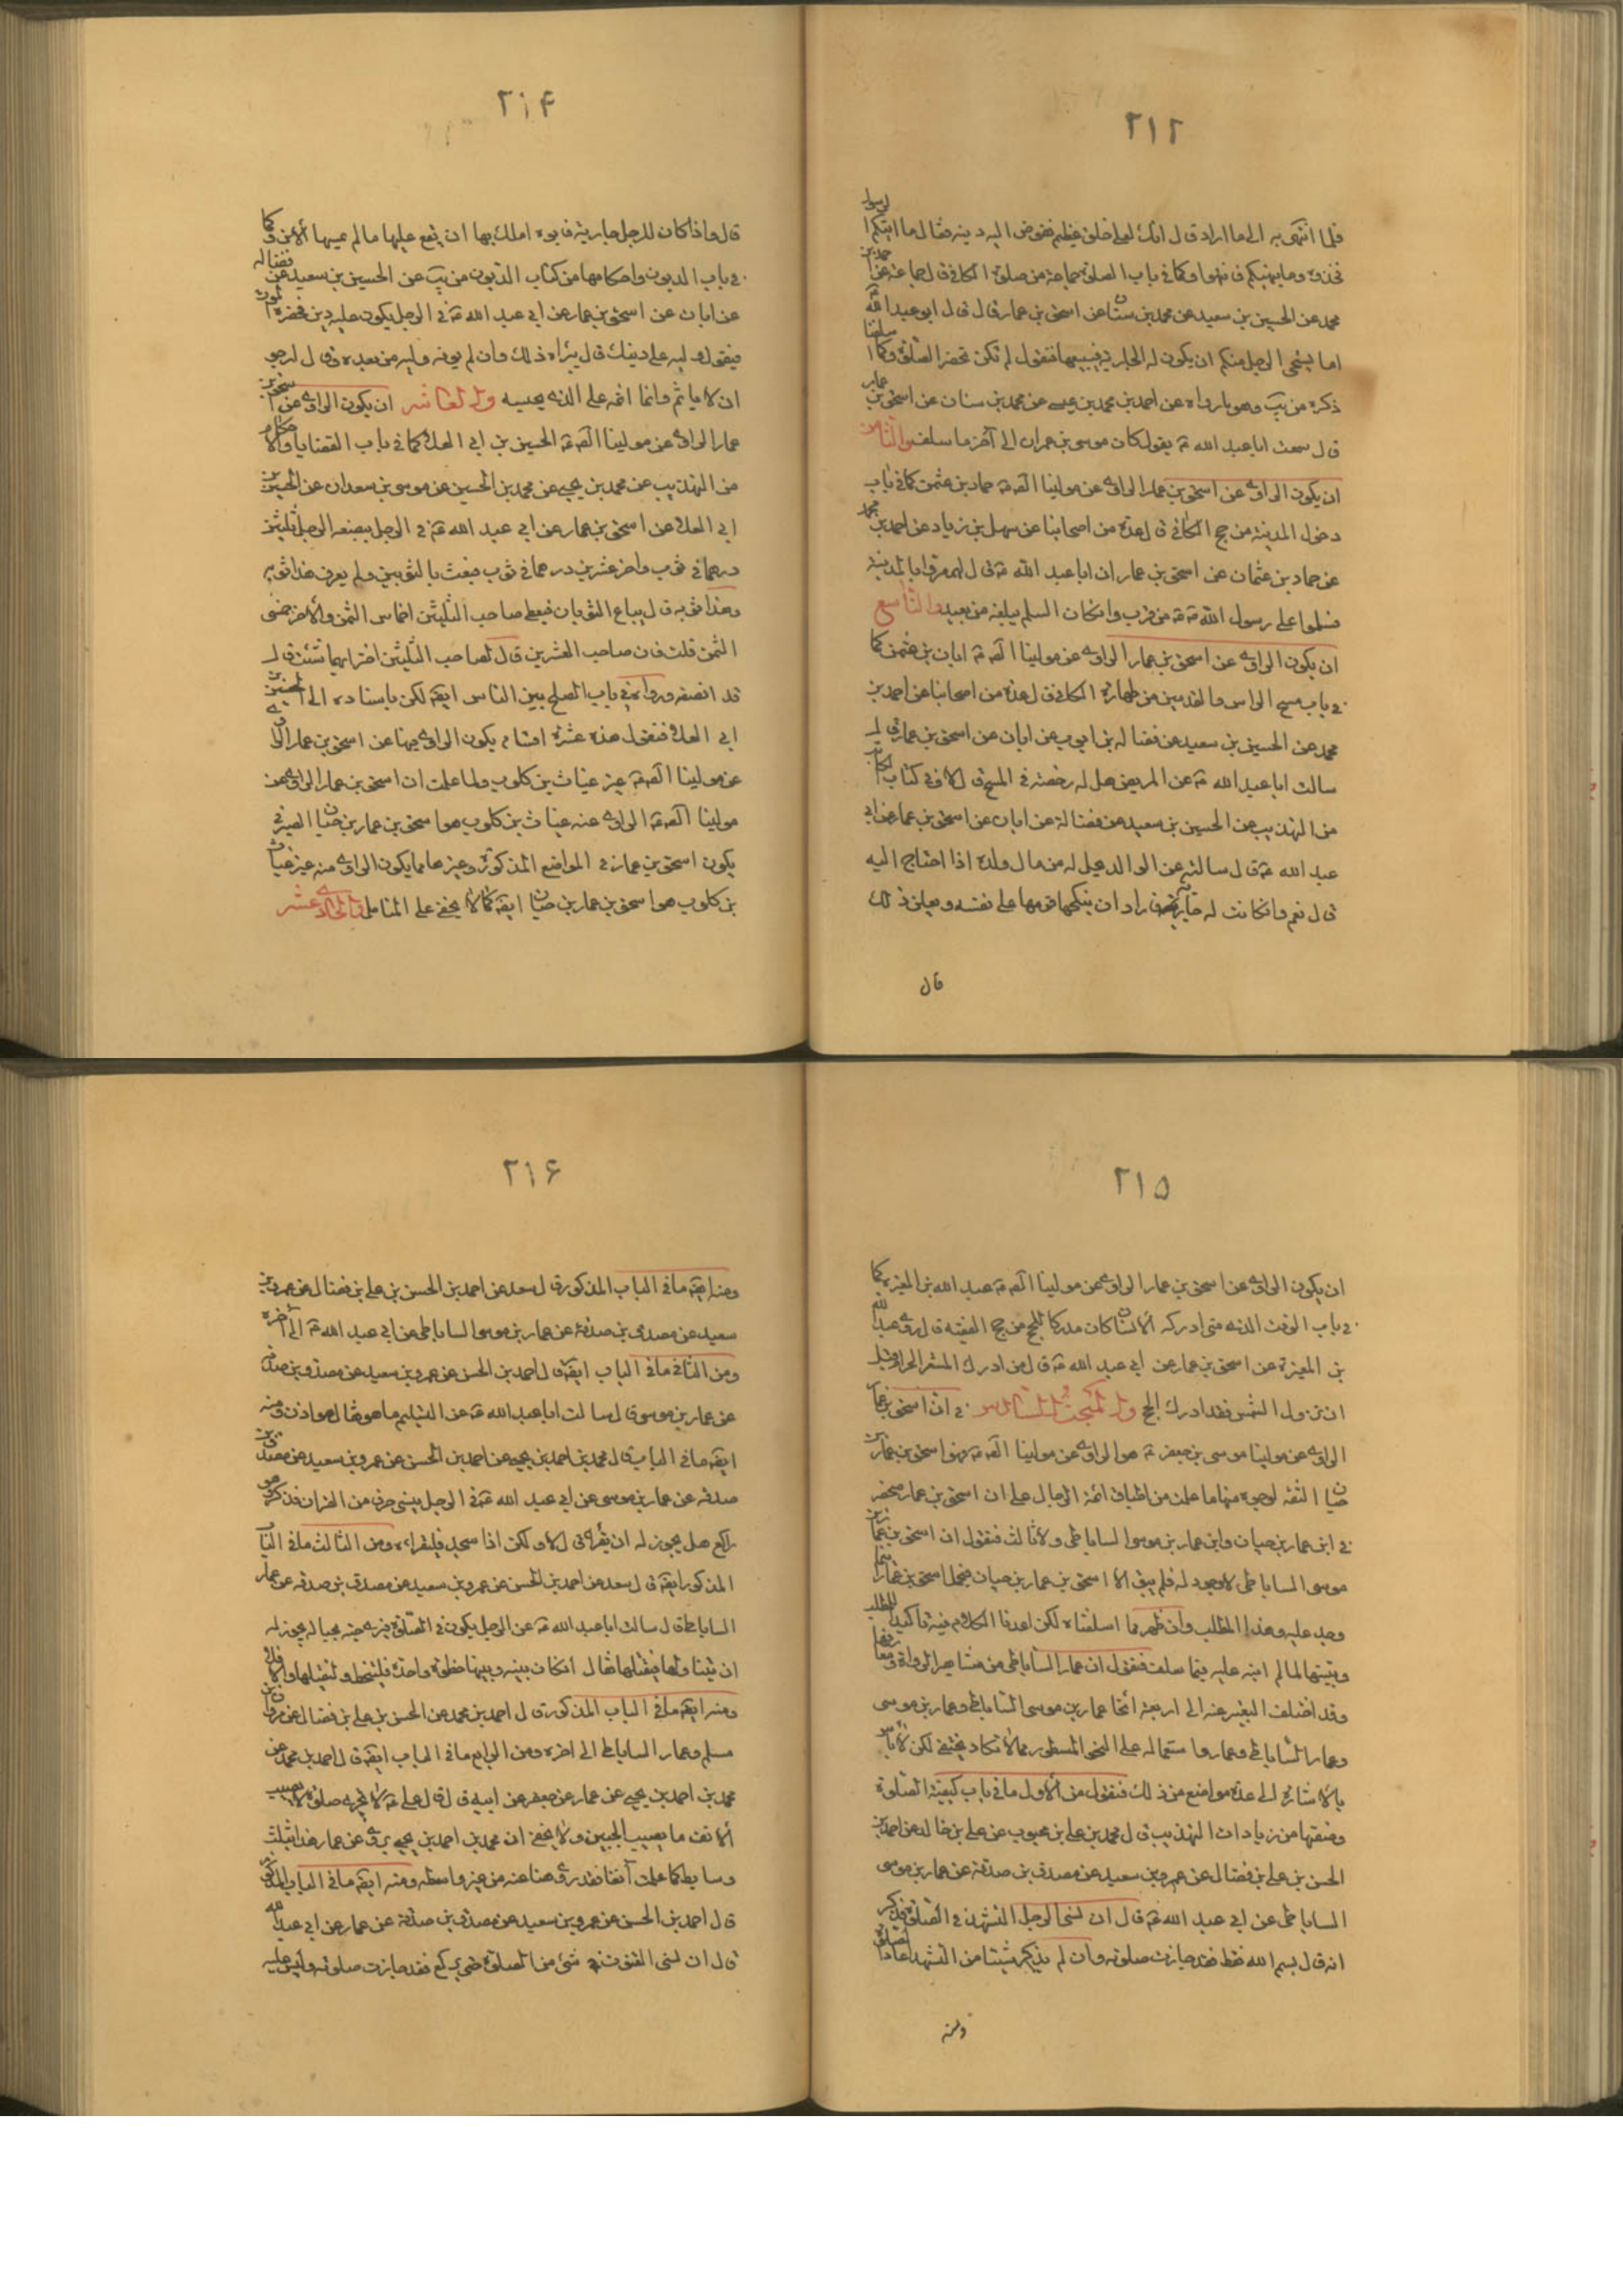 ٢١٢
فلما انتهى به الى ما اراد قال انك لعلى خلق عظيم ففوض اليه دينه فقال ما اتيكم الرسول
فخذوه وما نهيكم فانتهوا وكما في باب الصلوة جماعة من صلوة الكافي قال جماعة عن احمد بن
محمد عن الحسين بن سعيد عن محمد بن سنان عن اسحق بن عمار قال قال ابو عبد الله
اما يستحيي الرجل منكم ان يكون له الجارية فيبيعها فتقول لم تكن تحضر الصلوة وكما اسلفنا
ذكره من يب وهو ما رواه عن احمد بن محمد بن عيسى عن محمد بن سنان عن اسحق بن عمار
قال سمعت ابا عبد الله ع يقول كان موسى بن عمران الى آخر ما سلف والثامن
ان يكون الراوي عن اسحق بن عمار الراوي عن مولينا الص ع حماد بن عثمن كما في باب
دخول المدينة من حج الكافي قال عدة من اصحابنا عن سهل بن زياد عن احمد بن محمد
عن حماد بن عثمان عن اسحق بن عمار ان ابا عبد الله ع قال لهم مروا بالمدينة
فسلموا على رسول الله ص من قرب وان كان السلم يبلغه من بعيد والتاسع
ان يكون الراوي عن اسحق بن عمار الراوي عن مولينا الص ع ابان بن عثمن كما
في باب مسح الراس والقدمين من طهارة الكافي قال عدة من اصحابنا عن احمد بن
محمد عن الحسين بن سعيد عن فضالة بن ايوب عن ابان عن اسحق بن عمار قال
سالت ابا عبد الله ع عن المريض هل له رخصة في المسح قال لا وفي كتاب المكاسب
من التهذيب عن الحسين بن سعيد عن فضالة عن ابان عن اسحق بن عمار عن ابي
عبد الله ع قال سالته عن الوالد يحل له من مال ولده اذا احتاج اليه
قال نعم وان كانت له جارية فاراد ان ينكحها قومها على نفسه ويعلن ذلك
قال
٢١۴
قال واذا كان للرجل جارية فابوه املك بها ان يقع عليها ما لم يمسها الابن وكما
في باب الديون واحكامها من كتاب الديون من يب عن الحسين بن سعيد عن فضالة
عن ابان عن اسحق بن عمار عن ابي عبد الله ع في الرجل يكون عليه دين فحضره الموت
فيقول وليه على دينك قال يبراه ذلك وان لم يوفه وليه من بعده وقال ارجو
ان لا ياثم وانما اثمه على الذي يحبسه والعاشر ان يكون الراوي عن اسحق بن
عمار الراوي عن مولينا الص ع الحسين بن ابي العلا كما في باب القضايا والاحكام
من التهذيب عن محمد بن يحيى عن محمد بن الحسين عن موسى بن سعدان عن الحسين بن
ابي العلا عن اسحق بن عمار عن ابي عبد الله ع في الرجل يبضعه الرجل ثلثين
درهما في ثوب واخر عشرين درهما في ثوب فبعث بالثوبين ولم يعرف هذا ثوبه
وهذا ثوبه قال يباع الثوبان فيعطى صاحب الثلثين ثلثة اخماس الثمن والاخر خمسي
الثمن قلت فان صاحب العشرين قال لصاحب الثلثين اختر ايهما شئت قال
قد انصفه ورواه في باب الصلح بين الناس ايضا لكن باسناده الى الحسين بن
ابي العلا فنقول هذه عشرة اقسام يكون الراوي فيها عن اسحق بن عمار الراوي
عن مولينا الص ع غير غياث بن كلوب ولما علمت ان اسحق بن عمار الراوي عن
مولينا الص ع الراوي عنه غياث بن كلوب هو اسحق بن عمار بن حيان الصيرفي
يكون اسحق بن عمار في المواضع المذكورة وغيرها مما يكون الراوي منه غير غياث
بن كلوب هو اسحق بن عمار بن حيان ايضا كما لا يخفى على المتامل والحادي عشر
٢١۵
ان يكون الراوي عن اسحق بن عمار الراوي عن مولينا الص ع عبد الله بن المغيرة كما
في باب الوقت الذي متى ادركه الانسان كان مدركا للحج من حج الفقيه قال روى عبد الله
بن المغيرة عن اسحق بن عمار عن ابي عبد الله ع قال من ادرك المشعر الحرام قبل
ان تزول الشمس فقد ادرك الحج والمبحث السادس في ان اسحق بن عمار
الراوي عن مولينا موسى بن جعفر ع هو الراوي عن مولينا الص ع فهو اسحق بن عمار بن
حيان الثقة لوجوه منها ما علمت من اطباق ائمة الرجال على ان اسحق بن عمار منحصر
في ابن عمار بن حيان وابن عمار بن موسى الساباطي ولا ثالث فنقول ان اسحق بن عمار بن
موسى الساباطي لا وجود له فلم يبق الا اسحق بن عمار بن حيان فيحمل اسحق بن عمار اينما
وجد عليه وهذا المطلب وان ظهر مما اسلفناه لكن اعدنا الكلام فيه تاكيدا للمطلب
وتنبيها لما لم انبه عليه فيما سلف فنقول ان عمار الساباطي من مشاهير الرواة
وقد اختلف التعبير عنه الى اربعة انحا عمار بن موسى الساباطي وعمار بن موسى
وعمار الساباطي وعمار واستعماله على النحو المسطور مما لا تكاد يخفى لكن لا باس
بالاشارة الى عدة مواضع من ذلك فنقول من الاول ما في باب كيفية الصلوة
وصفتها من زيادات التهذيب قال محمد بن علي بن محبوب عن علي بن خالد عن احمد بن
الحسن بن علي بن فضال عن عمرو بن سعيد عن مصدق بن صدقة عن عمار بن موسى
الساباطي عن ابي عبد الله ع قال ان نسي الرجل التشهد في الصلوة فذكر
انه قال بسم الله فقط فقد جازت صلوته وان لم يذكر شيئا من التشهد اعاد الصلوة
ومنه
٢١۶
ومنه ايضا ما في الباب المذكور قال سعد عن احمد بن الحسن بن علي بن فضال عن عمرو بن
سعيد عن مصدق بن صدقة عن عمار بن موسى الساباطي عن ابي عبد الله ع الى آخره
ومن الثاني ما في الباب ايضا قال احمد بن الحسن عن عمرو بن سعيد عن مصدق بن صدقة
عن عمار بن موسى قال سالت ابا عبد الله ع عن التسليم ما هو فقال هو اذن ومنه
ايضا ما في الباب قال محمد بن احمد بن يحيى عن احمد بن الحسن عن عمرو بن سعيد عن مصدق بن
صدقة عن عمار بن موسى عن ابي عبد الله ع في الرجل ينسى حرفا من القران فذكر وهو
راكع هل يجوز له ان يقرأه قال لا ولكن اذا سجد فليقراه ومن الثالث ما في الباب
المذكور ايضا قال سعد عن احمد بن الحسن عن عمرو بن سعيد عن مصدق بن صدقة عن عمار
الساباطي قال سالت ابا عبد الله ع عن الرجل يكون في الصلوة فيرى حية بحياله يجوز له
ان يتناولها فيقتلها فقال ان كان بينه وبينها خطوة واحدة فليخط وليقتلها والا فلا
ومنه ايضا ما في الباب المذكور قال احمد بن محمد عن الحسن بن علي بن فضال عن مروان بن
مسلم وعمار الساباطي الى اخره ومن الرابع ما في الباب ايضا قال احمد بن محمد عن
محمد بن احمد بن يحيى عن عمار عن جعفر عن ابيه قال قال علي ع لا تجزي صلوة لا يصيب
الانف ما يصيب الجبين ولا يخفى ان محمد بن احمد بن يحيى يروي عن عمار هذا بثلث
وسايط كما علمت آنفا فقد روى هنا عنه من غير واسطه ومنه ايضا ما في الباب المذكور
قال احمد بن الحسن عن عمرو بن سعيد عن مصدق بن صدقة عن عمار عن ابي عبد الله
قال ان نسي القنوت في شئ من الصلوة حتى يركع فقد جازت صلوته وليس عليه